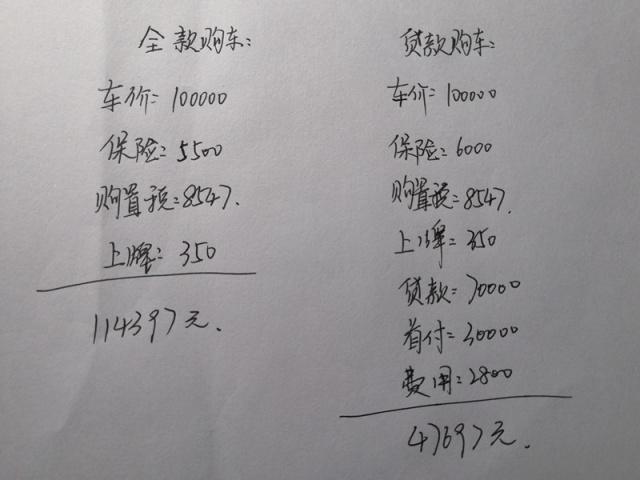 全款购车:
车价=100000
保险=5500
购置税=8547.
上牌=350
114397元.
贷款购车:
车价=100000
保险=6000
购置税=8547.
上牌=350
贷款=70000
首付=30000
费用=2800
47697元.